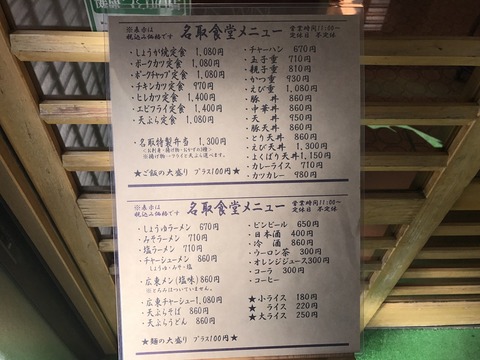 ※表示は
税込み価格です
名取食堂メニュー
営業時間11:00〜
定休日 不定休
・しょうが焼定食 1,080円
・ポークカツ定食 1,080円
・ポークチャップ定食 1,080円
・チキンカツ定食 970円
・ヒレカツ定食 1,400円
・エビフライ定食 1,400円
・天ぷら定食 1,080円
・名取特製弁当 1,300円
<お刺身・揚げ物・おかずの3種>
※揚げ物→フライと天ぷら選べます。
★ご飯の大盛り プラス100円★
・チャーハン 670円
・玉子重 710円
・親子重 810円
・かつ重 930円
・えび重 1,080円
・豚丼 860円
・中華丼 860円
・天丼 950円
・豚天丼 860円
・とり天丼 860円
・えび天丼 1,300円
・よくばり天丼 1,150円
・カレーライス 710円
・カツカレー 980円
※表示は
税込み価格です
名取食堂メニュー
営業時間11:00〜
定休日 不定休
・しょうゆラーメン 670円
・みそラーメン 710円
・塩ラーメン 710円
・チャーシューメン 860円
しょうゆ・みそ・塩
・広東メン(塩味) 860円
※とろみはついていません。
・広東チャーシュー 1,080円
・天ぷらそば 860円
・天ぷらうどん 860円
★麺の大盛り プラス100円★
・ビンビール 650円
・日本酒 400円
・冷酒 860円
・ウーロン茶 300円
・オレンジジュース 300円
・コーラ 300円
・コーヒー
★小ライス 180円
★ライス 220円
★大ライス 250円